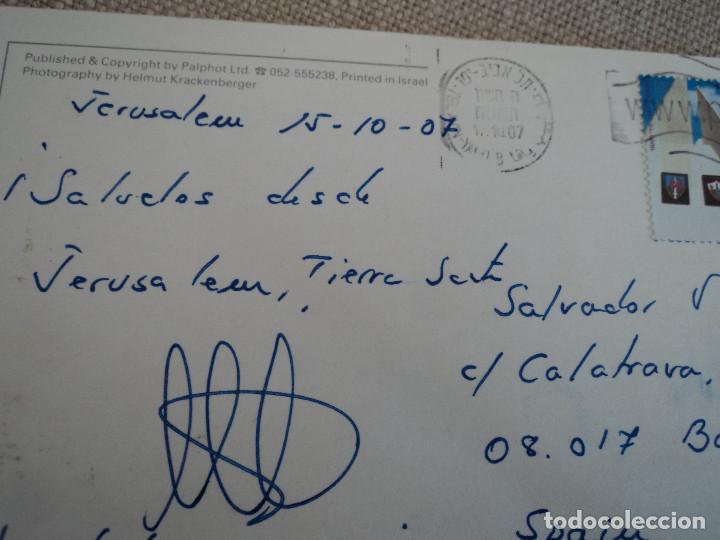 Published & Copyright by Palphot Ltd. ☎ 052-555238, Printed in Israel
Photography by Helmut Krackenberger
Jerusalem 15-10-07
¡Saludos desde
Jerusalem, Tierra Santa
Salvador
c/ Calatrava,
08.017 Ba
Spain
WWW
todocoleccion
todocoleccion.net